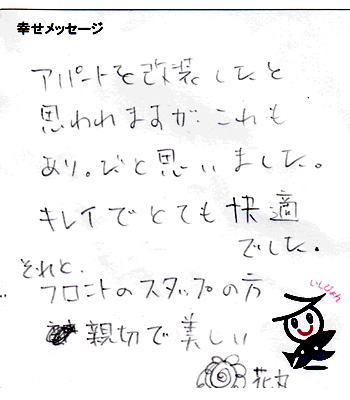 幸せメッセージ
アパートを改装したと
思われますが、これも
あり。だと思いました。
キレイでとても快適
でした。
それと、
フロントのスタッフの方
親切で美しい
花丸
いしぴょん